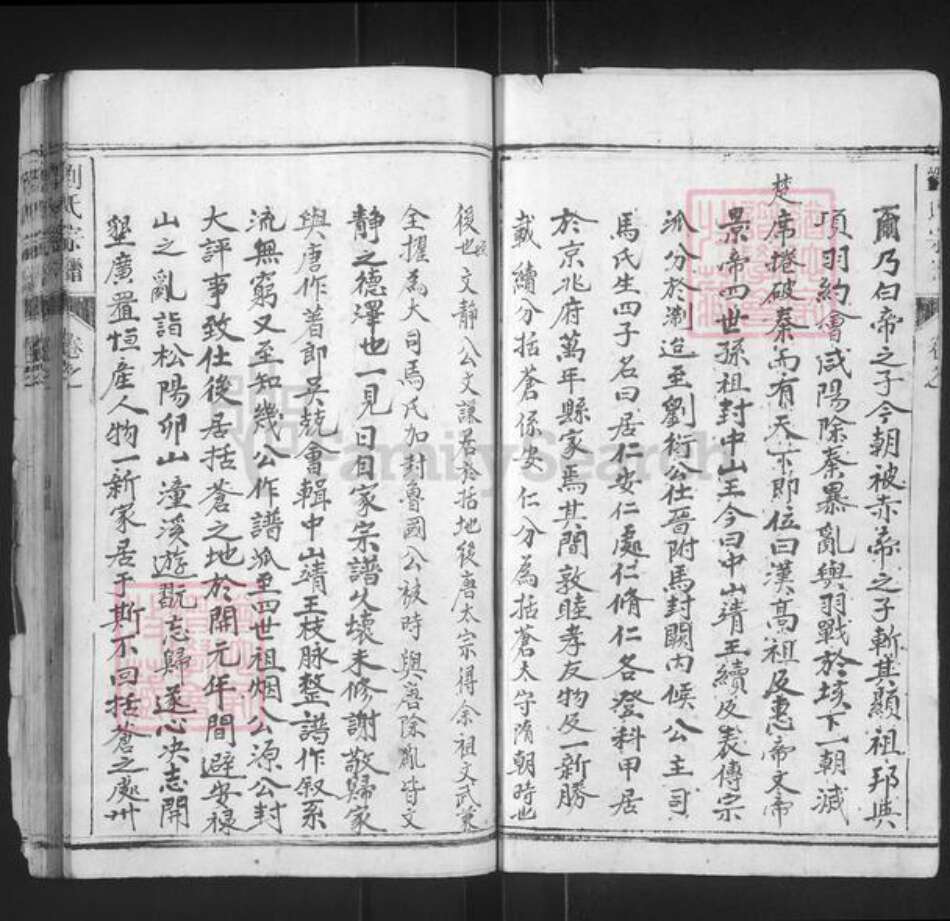 爾乃白帝之子今朝被赤帝之子斬其顯祖邦與
項羽約會咸陽除秦暴亂與羽戰於垓下一朝滅
楚席捲破秦而有天下即位曰漢高祖及惠帝文帝
景帝四世孫祖封中山王今曰中山靖王續及表傳宗
派分於淛迨至劉衍公仕晉附馬封關內候公主司
馬氏生四子名曰居仁安仁處仁脩仁各登科甲居
於京兆府萬年縣家焉其間敦睦孝友物及一新勝
載續分括蒼係安仁分為括蒼太守隋朝時也
後也文靜公文謙居於括地後唐太宗得余祖文武兼
全擢為大司馬氏加封魯國公被時與唐除亂皆文
靜之德澤也一見日自家宗譜火壞未修謝敬歸家
與唐作著郎吳兢會輯中山靖王枝脉整譜作叙系
流無窮又至知幾公作譜派至四世祖烟公源公封
大評事致仕後居括蒼之地於開元年間避安祿
山之亂詣松陽卯山潼溪遊翫忘歸遂心决志開
墾廣置恒產人物一新家居于斯不回括蒼之處州
劉氏宗譜
卷之一
FamilySearch